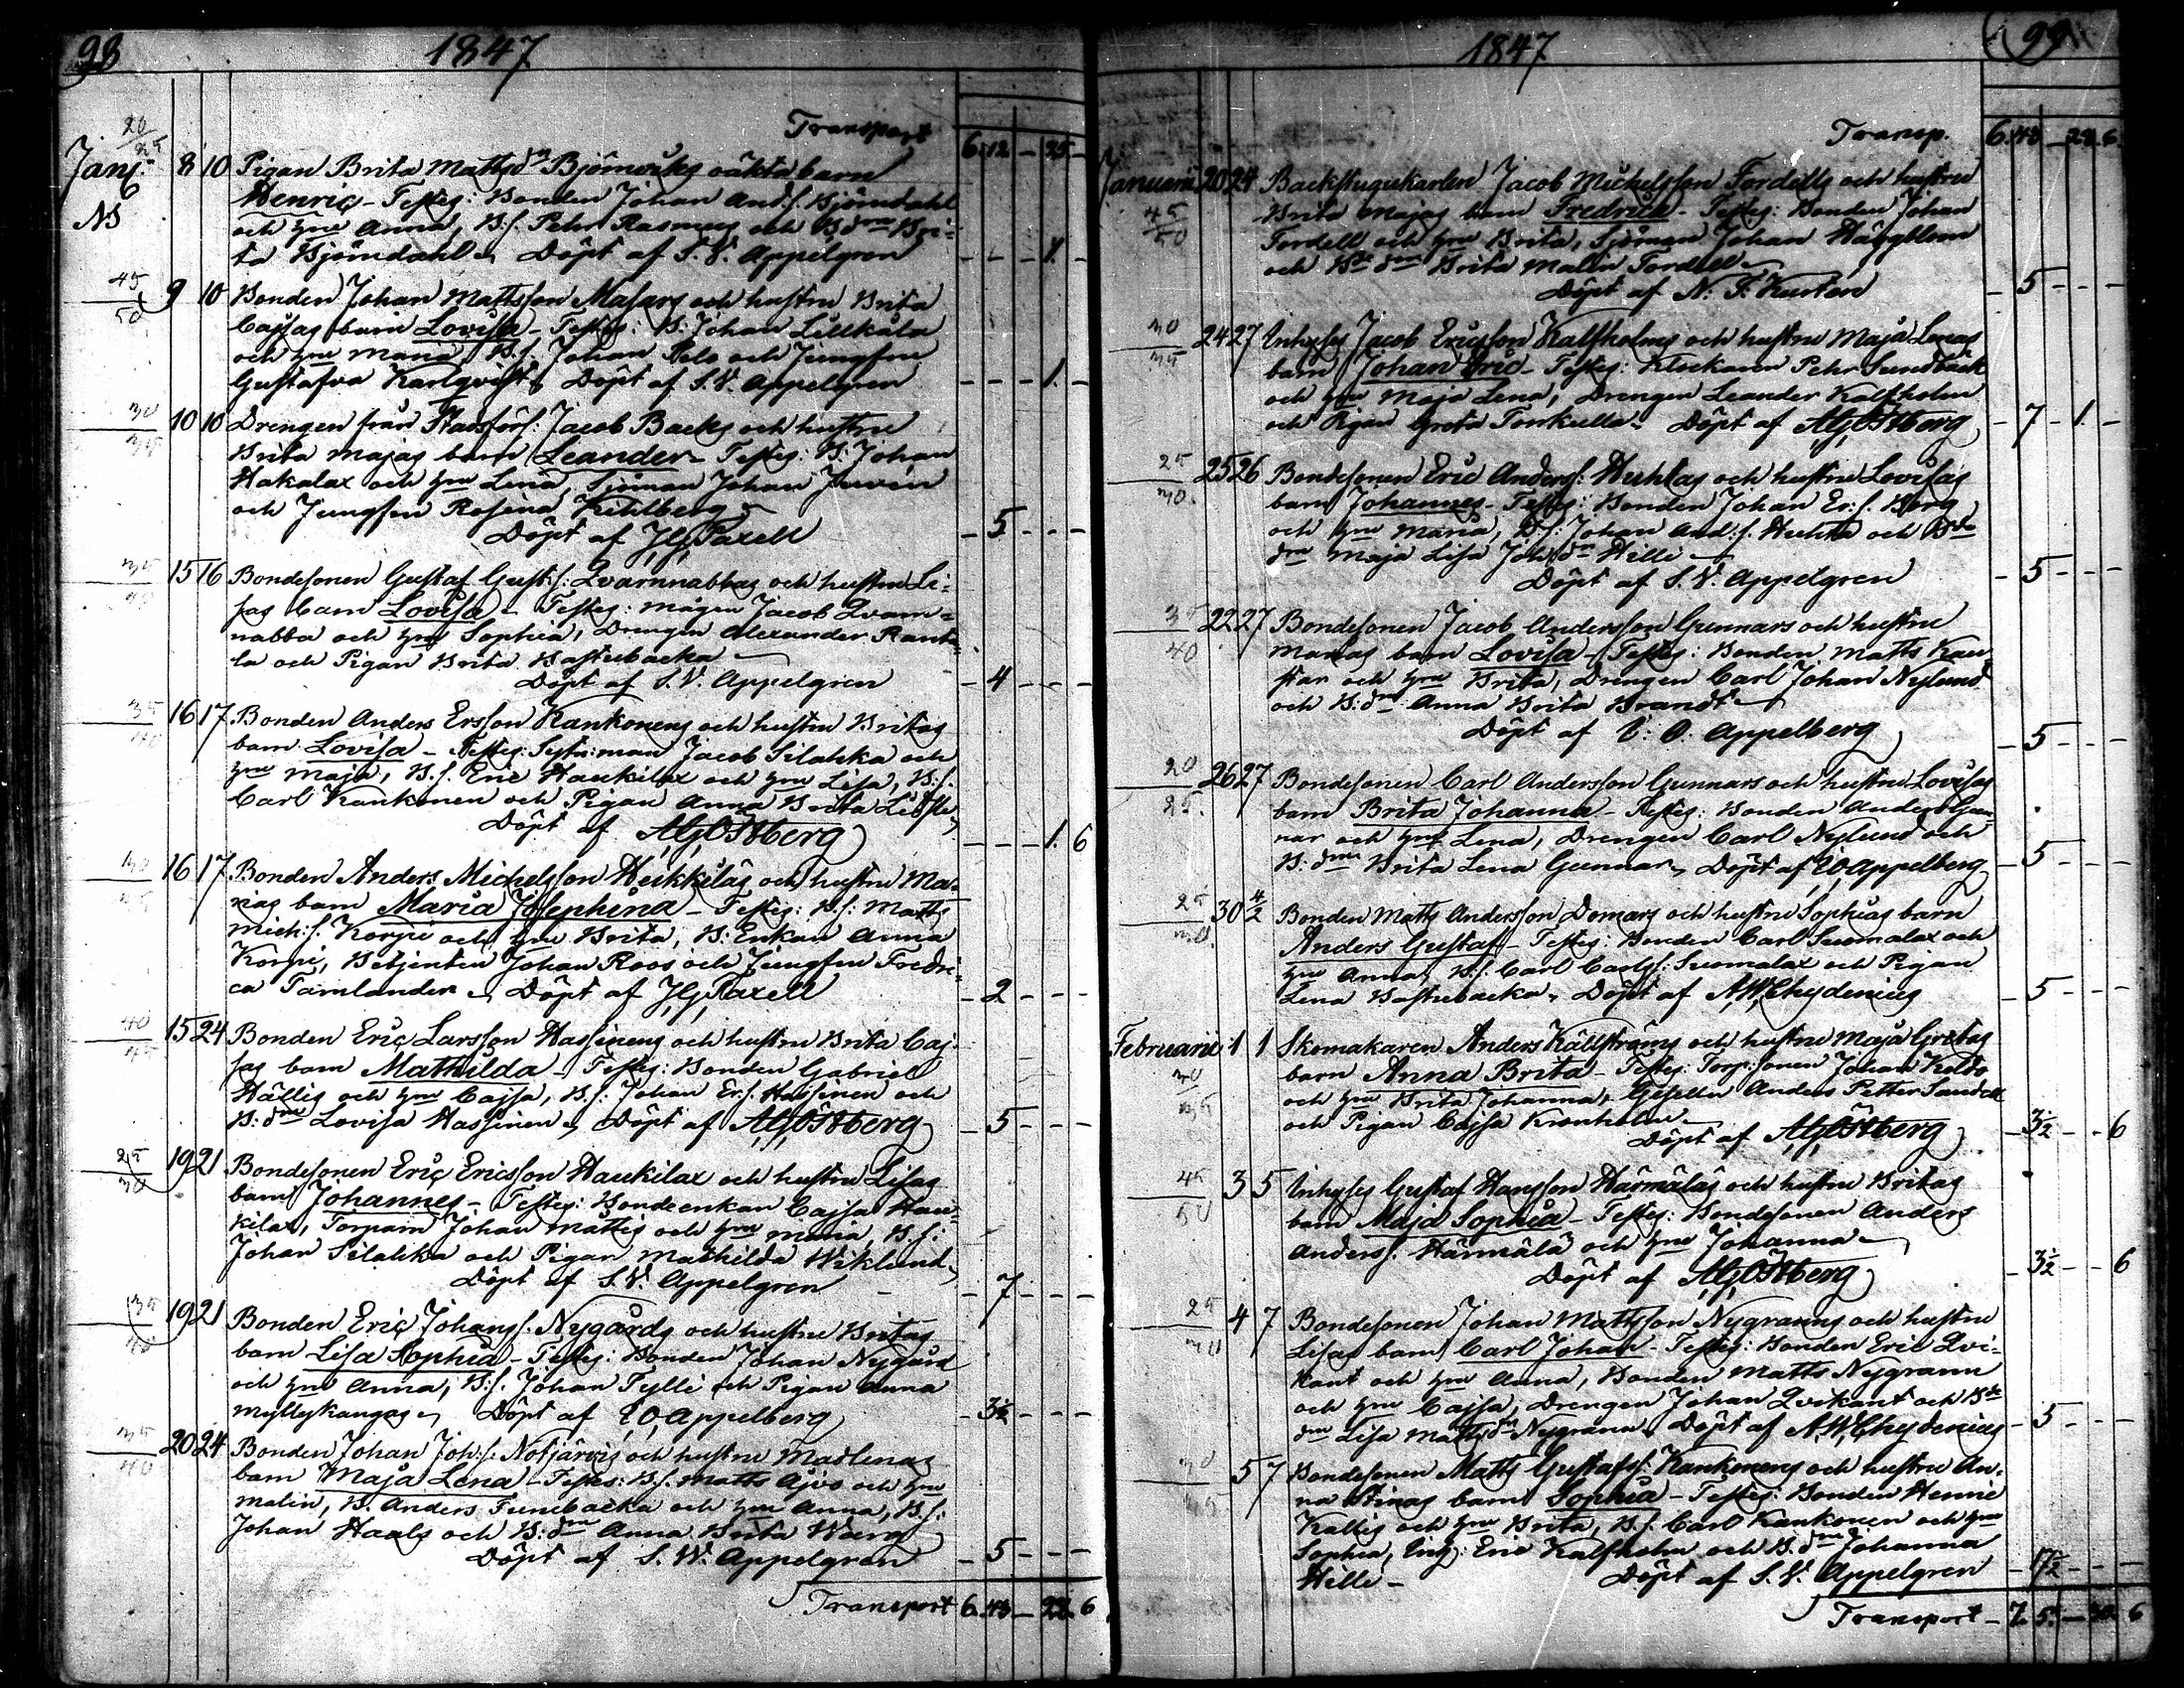 98
1847
Transport 6. 12 - 25 -
20
25
Janr. 8 10 Pigan Brita Mattsdr Björnwiks oäkta barn
NS
Henric - Testes: Bonden Johan Ands. Björndahl
och hru Anna, B.s. Pehr Rasmus och B.dr Bri-
ta Björndahl. Döpt af S. W. Appelgren - - - 1. -
45
50
9 10 Bonden Johan Mattsson Masars och hustru Brita
Cajsas barn Lovisa - Testes: B. Johan Lillkåla
och hru Maria, B.s. Johan Pelo och Jungfru
Gustafva Karlqvist. Döpt af S. W. Appelgren - - - 1. -
30
35
10 10 Drengen från Stadsförs: Jacob Backs och hustru
Brita Majas barn Leander - Testes: B. Johan
Hakalax och hru Lena, Sjöman Johan Juvén
och Jungfru Rosina Kihlberg
Döpt af J. G. Paxell - 5 - - -
35
40
15 16 Bondesonen Gustaf Gusts: Qvarnnabbas och hustru Li-
sas barn Lovisa - Testes: mågen Jacob Qvarn-
nabba och hru Sophia, Drengen Alexander Ranta-
la och Pigan Brita Bastubacka
Döpt af S. W. Appelgren - 4 - - -
35
40
16 17 Bonden Anders Ersson Kankonens och hustru Britas
barn Lovisa - Testes: Sytn:man Jacob Silakka och
hru Maja, B.s. Eric Haukilax och hru Lisa, B.s.
Carl Kankonen och Pigan Anna Brita
Döpt af A. G. Östberg - - - 1. 6
16 17 Bonden Anders Michelsson Heikkiläs och hustru Ma-
rias barn Maria Josephina - Testes: B.s: Matts
Mich:s. Korpi och hru Brita, B: Enkan Anna
Korpi, Betjenten Johan Roos och Jungfru Fredri-
ca Tamlander. Döpt af J. G. Paxell - 2 - - -
40
45
15 24 Bonden Eric Larsson Hassinens och hustru Brita Caj-
sas barn Mathilda - Testes: Bonden Gabriel
Hällis och hru Cajsa, B.s: Johan Er.s. Hassinen och
B: dr Lovisa Hassinen. Döpt af A. G. Östberg - 5 - - -
25
30
19 21 Bondesonen Eric Ericsson Haukilax och hustru Lisas
barn Johannes - Testes: Bondeenkan Cajsa Hau-
kilax, Torparn Johan Mattis och hru Maria, B.s:
Johan Silakka och Pigan Mathilda Wiklund
Döpt af S. W. Appelgren - 7 - - -
35
40
19 21 Bonden Eric Johans. Nygårds och hustru Britas
barn Lisa Sophia - Testes: Bonden Johan Nygård
och hru Anna, B.s. Johan Tylli och Pigan Anna
Myllykangas. Döpt af E. O. Appelberg - 3½ - - -
35
40
20 24 Bonden Johan Joh:s: Notjärvis och hustru Madlenas
barn Maja Lena - Testes: B.s. Matts Ajvo och hru
Malin, B. Anders Furubacka och hru Anna, B.s:
Johan Haals och B: dr Anna Brita Warg
Döpt af S. W. Appelgren - 5 - - -
Transport 6. 43 - 28. 6
99
1847
Transp. 6. 43 - 28. 6.
Januarii 20 24 Backstugukarlen Jacob Michelsson Fordells och hustru
45
50
Brita Majas barn Fredrica - Testes: Bonden Johan
Fordell och hru Brita, Sjöman Johan Häggblom
och Bde dr Brita Malin Fordell
Döpt af N. J. Kurtén - 5 - - -
30
35
24 27 Inhyses Jacob Ericsson Kalfholms och hustru Maja Lenas
barn Johan Eric - Testes: Klockaren Pehr Sundbäck
och hru Maja Lena, Drengen Leander Kalfholm
och Pigan Greta Forskulla. Döpt af A. G. Östberg - 7 - 1. -
25
30.
25 26 Bondesonen Eric Anders: Huhtas och hustru Lovisas
barn Johannes - Testes: Bonden Johan Er:s. Borg
och hru Maria, B.s: Johan And:s. Huhta och Bde
dr Maja Lisa Johsdr Hilli
Döpt af S. W. Appelgren - 5 - - -
35
40
22 27 Bondesonen Jacob Andersson Gunnars och hustru
Marias barn Lovisa - Testes: Bonden Matts Kau-
star och hru Brita, Drengen Carl Johan Nylund
och B: dr Anna Brita Brandt
Döpt af E. O. Appelberg - 5 - - -
20
25.
26 27 Bondesonen Carl Andersson Gunnars och hustru Lovisas
barn Brita Johanna - Testes: Bonden Anders Gun-
nar och hru Lena, Drengen Carl Nylund och
B: dr Brita Lena Gunnar. Döpt af E. O. Appelberg - 5 - - -
25
30.
30 4/2 Bonden Matts Andersson Domars och hustru Sophias barn
Anders Gustaf - Testes: Bonden Carl Suomalax och
hru Anna, B.s. Carl Carls: Suomalax och Pigan
Lena Bastubacka. Döpt af A. W. Chydenius - 5 - - -
Februarii 1 1 Skomakaren Anders Källströms och hustru Maja Gretas
30
35
barn Anna Brita - Testes: Torp:sonen Johan Koldo
och hru Brita Johanna, Gesellen Anders Petter Sandell
och Pigan Cajsa Kronholm
Döpt af A. G. Östberg - 3½ - - 6
45
50
3 5 Inhyses Gustaf Hansson Härmäläs och hustru Britas
barn Maja Sophia - Testes: Bondesonen Anders
Anders. Härmälä och hru Johanna
Döpt af A. G. Östberg - 3½ - - 6
25
30
4 7 Bondesonen Johan Mattsson Nygranns och hustru
Lisas barn Carl Johan - Testes: Bonden Eric Qvi-
kant och hru Anna, Bonden Matts Nygrann
och hru Cajsa, Drengen Johan Qvikant och Bde
dr Lisa Mattsdr Nygrann. Döpt af A. W. Chydenius - 5 - - -
5 7 Bondesonen Matts Gustafs: Kankonens och hustru An-
na Stinas barn Sophia - Testes: Bonden Henric
Kallis och hru Brita, B.s. Carl Kankonen och hru
Sophia, Inh: Eric Kalfholm och B: dr Johanna
Hilli - Döpt af S. W. Appelgren - 17½ - - -
Transport - 7. 5. - 30. 6